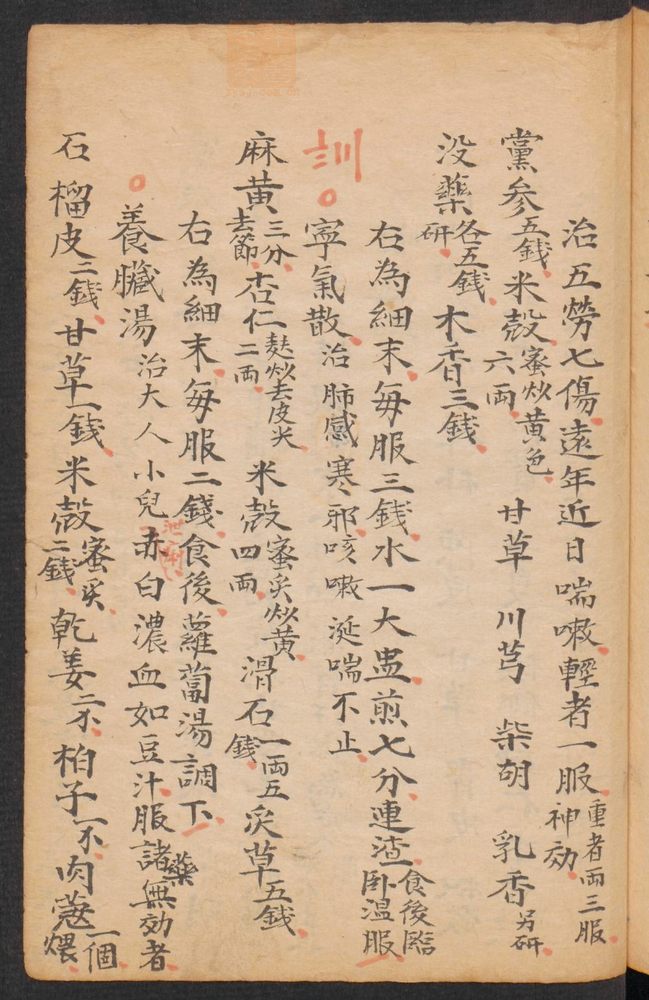 治五勞七傷遠年近日喘嗽輕者一服神効重者兩三服
黨參五錢米殼蜜炒黄色六兩甘草川芎柴胡乳香另研
没藥各五錢研木香三錢
右為細末每服三錢水一大盅煎七分連渣食後臨卧温服
訓
寧氣散治肺感寒邪咳嗽涎喘不止
麻黄三分去節杏仁麩炒去皮尖二兩米殼蜜炙炒黄四兩滑石一兩五錢炙草五錢
右為細末每服二錢食後蘿蔔湯調下
養臟湯治大人小兒赤白濃血如豆汁服諸藥無効者
石榴皮三錢甘草一錢米殼蜜炙二錢乾姜二不柏子一不肉蔻一個煨